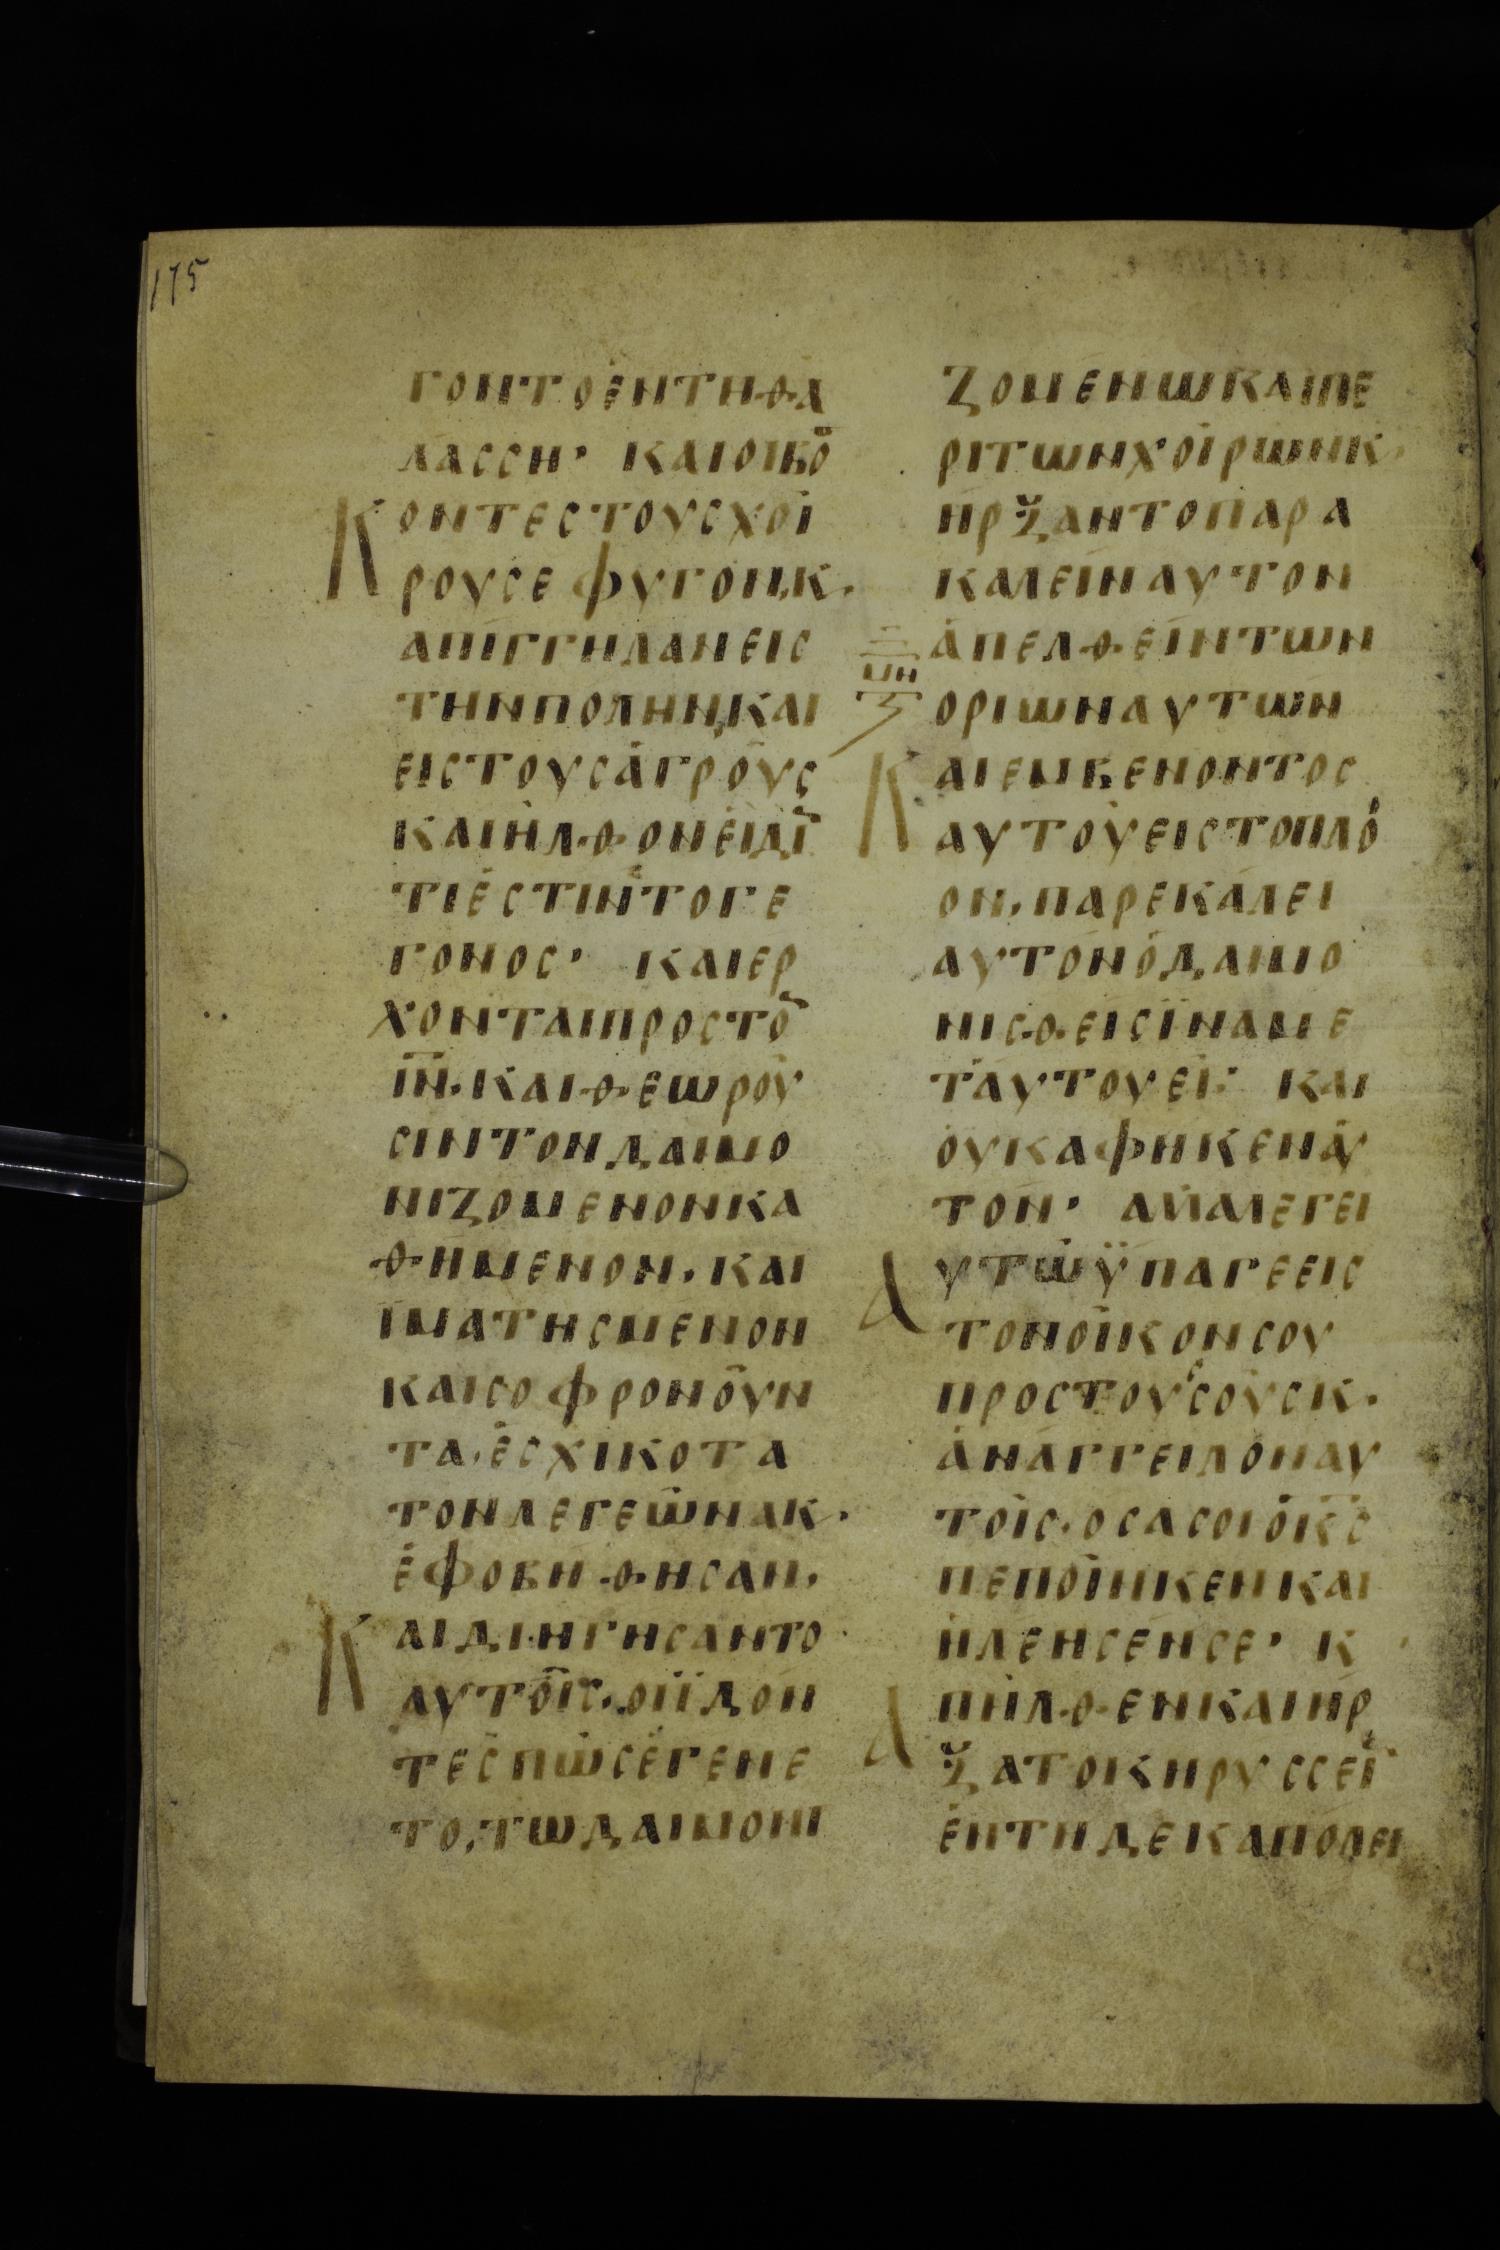 175
ΓΟΝΤΟΕΝΤΗΘΑ
ΛΑΣΣΗ· ΚΑΙΟΙΒΟ
ΚΟΝΤΕΣΤΟΥΣΧΟΙ
ΡΟΥΣΕΦΥΓΟΝ,Κ
ΑΠΙΓΓΗΛΑΝΕΙΣ
ΤΗΝΠΟΛΗΝ,ΚΑΙ
ΕΙΣΤΟΥΣΑΓΡΟΥΣ
ΚΑΙΗΛΘΟΝΕΙΔΙ
ΤΙΕΣΤΙΝΤΟΓΕ
ΓΟΝΟΣ· ΚΑΙΕΡ
ΧΟΝΤΑΙΠΡΟΣΤΟ
ΙΝ̅·ΚΑΙΘΕΩΡΟΥ
ΣΙΝΤΟΝΔΑΙΜΟ
ΝΙΖΟΜΕΝΟΝΚΑ
ΘΗΜΕΝΟΝ·ΚΑΙ
ΙΜΑΤΗΣΜΕΝΟΝ
ΚΑΙΣΟΦΡΟΝΟΥΝ
ΤΑ·ΕΣΧΙΚΟΤΑ
ΤΟΝΛΕΓΕΩΝΑΚ·
ΕΦΟΒΗΘΗΣΑΝ·
ΚΑΙΔΙΗΓΗΣΑΝΤΟ
ΑΥΤΟΙΣ·ΟΙΪΔΟΝ
ΤΕΣΠΩΣΕΓΕΝΕ
ΤΟ,ΤΩΔΑΙΜΟΝΙ
ΖΟΜΕΝΩΚΑΙΠΕ
ΡΙΤΩΝΧΟΙΡΩΝΚ·
ΗΡΞΑΝΤΟΠΑΡΑ
ΚΑΛΕΙΝΑΥΤΟΝ
ΑΠΕΛΘΕΙΝΤΩΝ
ΟΡΙΩΝΑΥΤΩΝ
ΚΑΙΕΜΒΕΝΟΝΤΟΣ
ΑΥΤΟΥΕΙΣΤΟΠΛΟ
ΟΝ·ΠΑΡΕΚΑΛΕΙ
ΑΥΤΟΝΟΔΑΙΜΟ
ΝΙΣΘΕΙΣΪΝΑΜΕ
ΤΑΥΤΟΥΕΙ· ΚΑΙ
ΟΥΚΑΦΗΚΕΝΑΥ
ΤΟΝ· ΑΛΛΑΛΕΓΕΙ
ΑΥΤΩΫΠΑΓΕΕΙΣ
ΤΟΝΟΙΚΟΝΣΟΥ
ΠΡΟΣΤΟΥΣΣΟΥΣΚ·
ΑΝΑΓΓΕΙΛΟΝΑΥ
ΤΟΙΣ·ΟΣΑΣΟΙΟΚΣ̅
ΠΕΠΟΙΗΚΕΝΚΑΙ
ΗΛΕΗΣΕΝΣΕ· Κ
ΑΠΗΛΘΕΝΚΑΙΗΡ
ΞΑΤΟΚΗΡΥΣΣΕΙ
ΕΝΤΗΔΕΚΑΠΟΛΕΙ